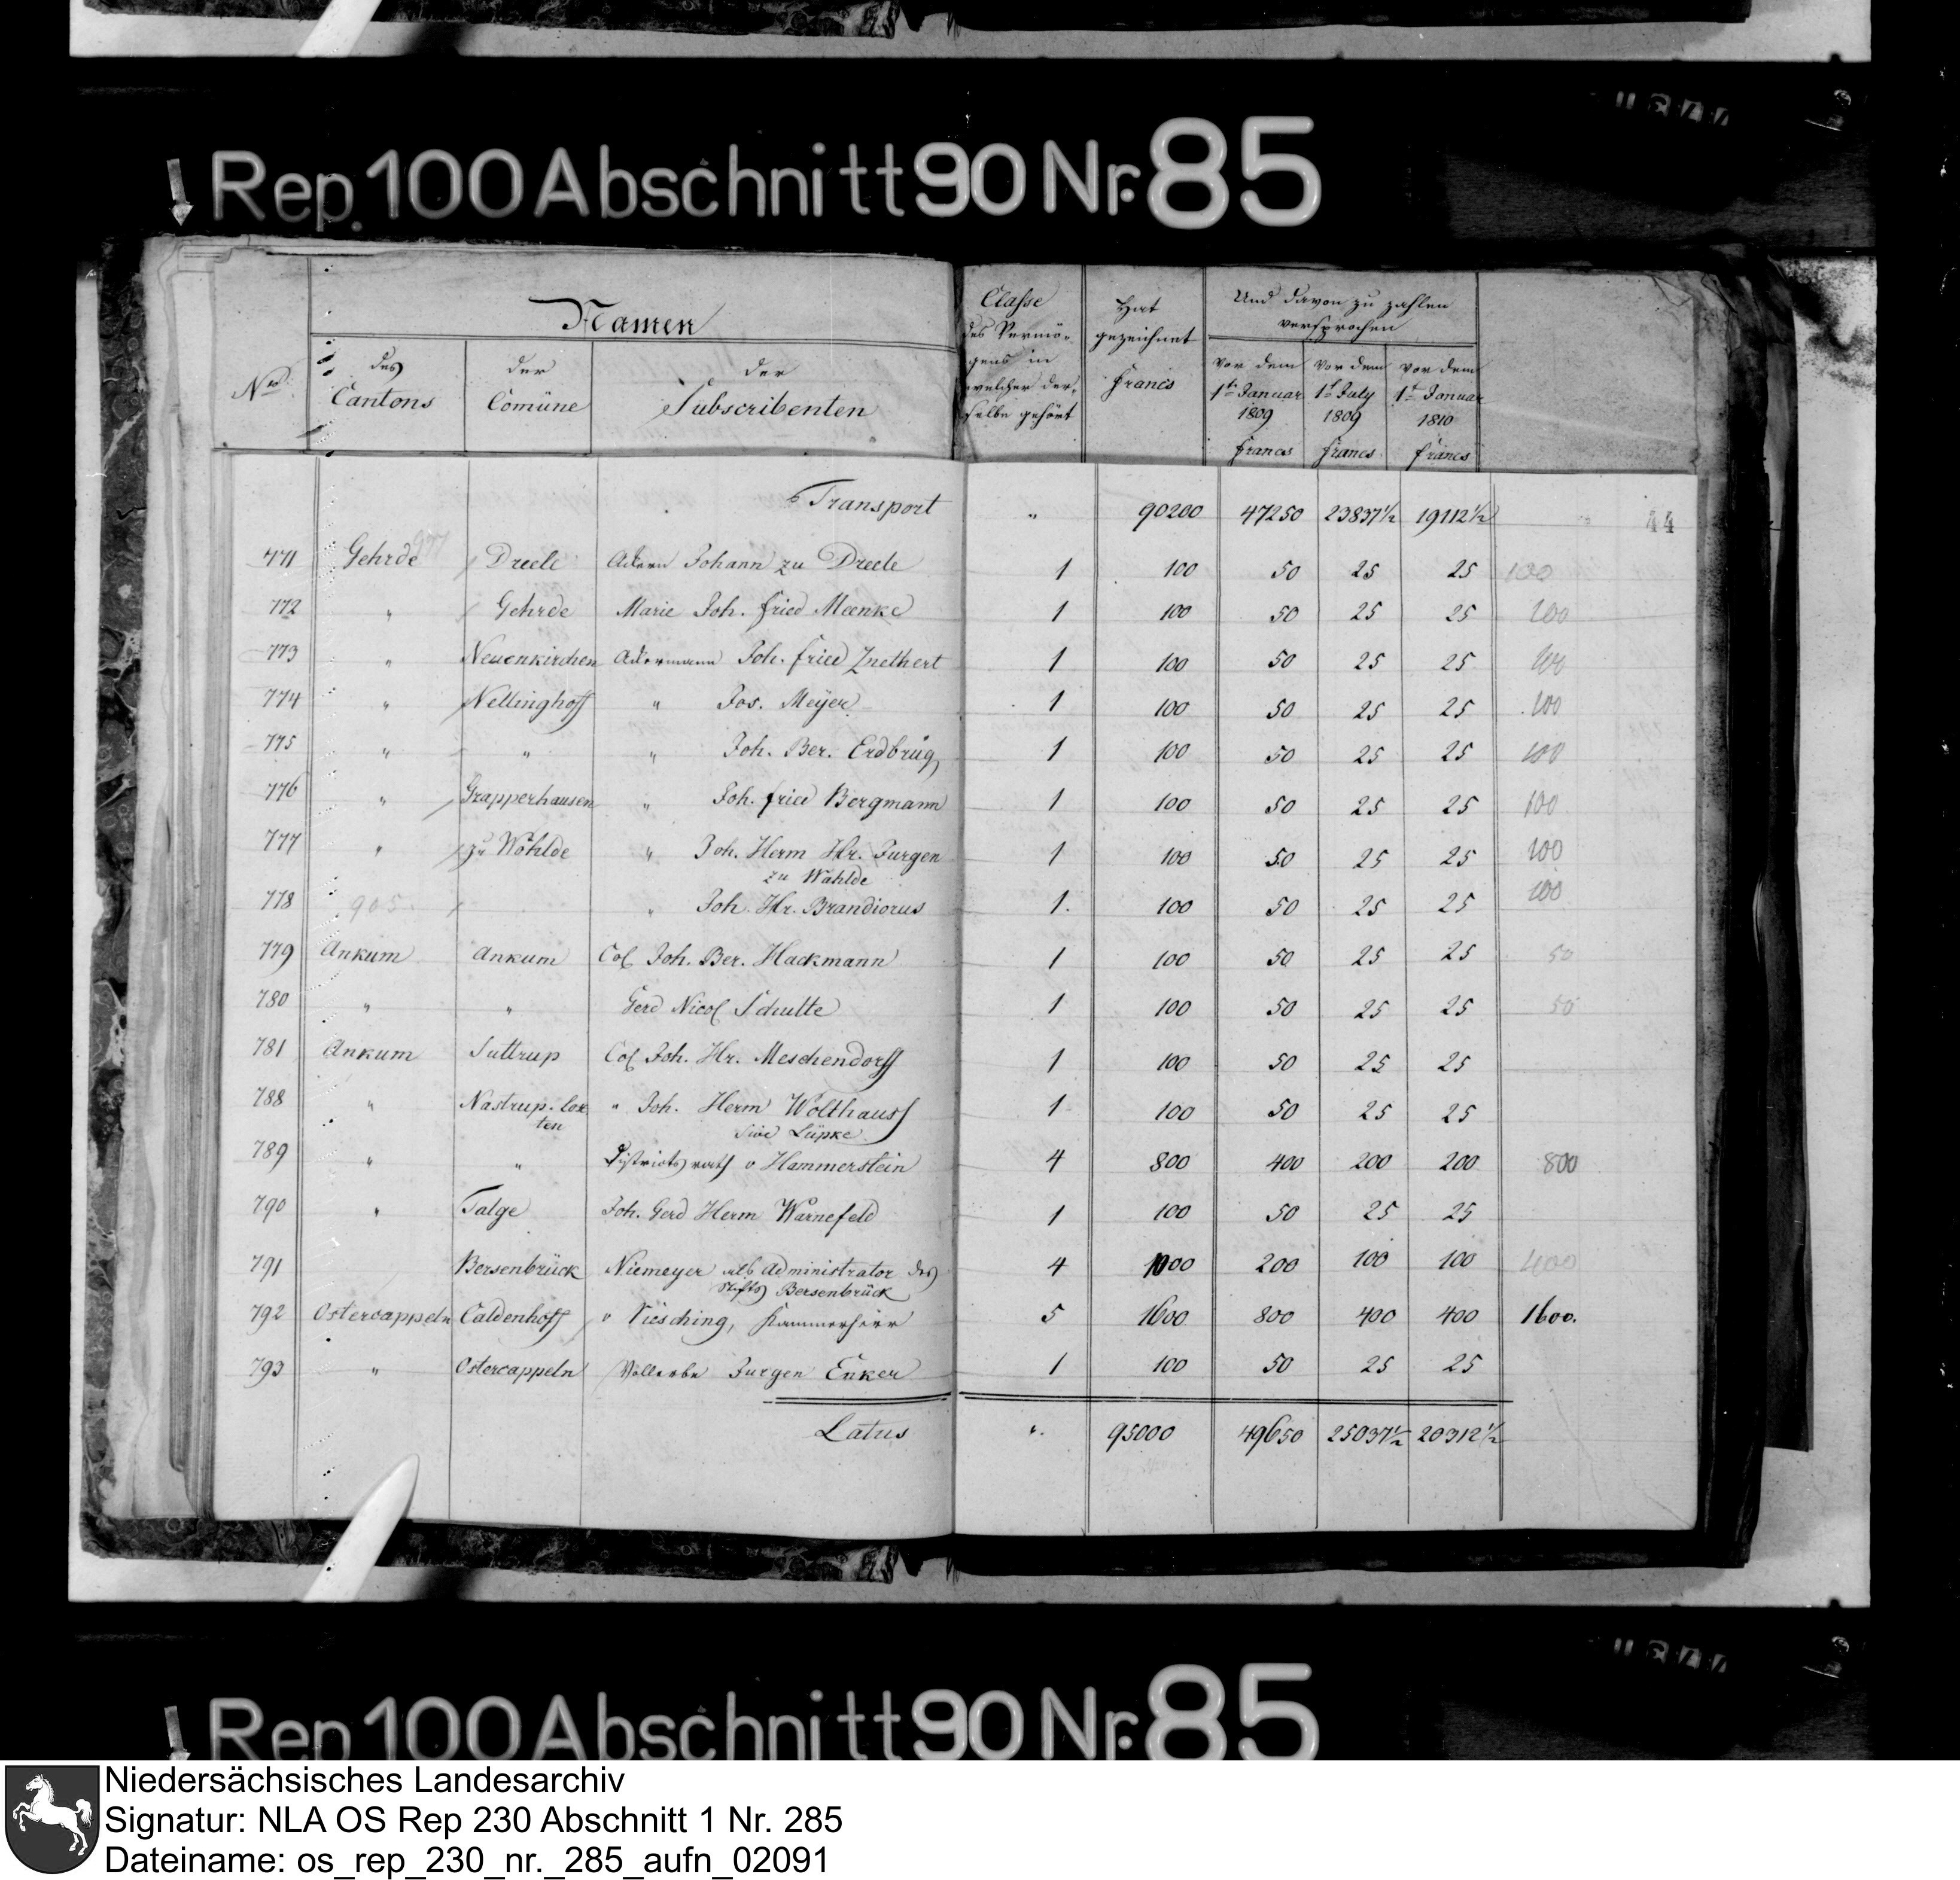 Rep. 100 Abschnitt 90 Nr. 85
Namen
Classe des Vermö-
gens in
welcher der-
selbe gehört
Hat
gezeichnet
Francs
Und davon zu zahlen
versprochen
No
des
Cantons
der
Comüne
der
Subscribenten
vor dem
1t Januar
1809
Francs
vor dem
1t July
1809
Francs
vor dem
1t Januar
1810
Francs
Transport " 90200 47250 23837½ 19112½ 44
771 Gehrde Dreele Johann zu Dreele 1 100 50 25 25 100
772 " Gehrde Marie Joh. Fried Meenke 1 100 50 25 25 100
773 " Neuenkirchen Ackermann Joh. Fried Znethert 1 100 50 25 25 100
774 " Nellinghoff " Jos. Meÿer 1 100 50 25 25 100
775 " " " Joh. Ber. Erdbrüg 1 100 50 25 25 100
776 " Grapperhausen " Joh. Fried Bergmann 1 100 50 25 25 100
777 " zu Wohlde " Joh. Herm Hr. Jurgen 1 100 50 25 25 100
zu Wahlde
778 905 " Joh. Hr. Brandiorus 1 100 50 25 25 100
779 Ankum Ankum Col Joh. Ber. Hackmann 1 100 50 25 25 50
780 " " Gerd Nicol Schulte 1 100 50 25 25 50
781 Ankum Suttrup Col Joh. Hr. Meschendorff 1 100 50 25 25
788 " Nastrup. Lox " Joh. Herm Wolthaus 1 100 50 25 25
ten sive Lüpke
789 " " Districtsrath v Hammerstein 4 800 400 200 200 800
790 " Talge Joh. Gerd Herm Warnefeld 1 100 50 25 25
791 Bersenbrück Niemeyer als Administrator des 4 1000 200 100 100 400
Stifts Bersenbrück
792 Ostercappeln Caldenhoff v Viesching, Kammerherr 5 1600 800 400 400 1600.
793 " Ostercappeln Vollerbe Jurgen Enker 1 100 50 25 25
Latus " 95000 49650 25037½ 20312½
Rep 100 Abschnitt 90 Nr. 85
Niedersächsisches Landesarchiv
Signatur: NLA OS Rep 230 Abschnitt 1 Nr. 285
Dateiname: os_rep_230_nr._285_aufn_02091